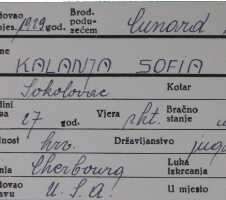 ovao Brod-
jes. 1929 god. podu- Cunard
zećem
ne
KALANJA SOFIA
Sokolovac Kotar
dini
za 27 god. Vjera rkt. Bračno
stanje
nost hrv. Državljanstvo jugo
nla Cherbourg Luka
iskrcanja
ovao
avu U. S. A. U mjesto